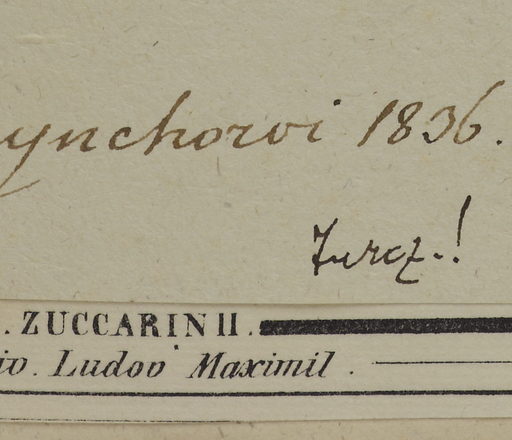 ynchorvi 1836.
Turcz.!
. ZUCCARINII.
io. Ludov Maximil.